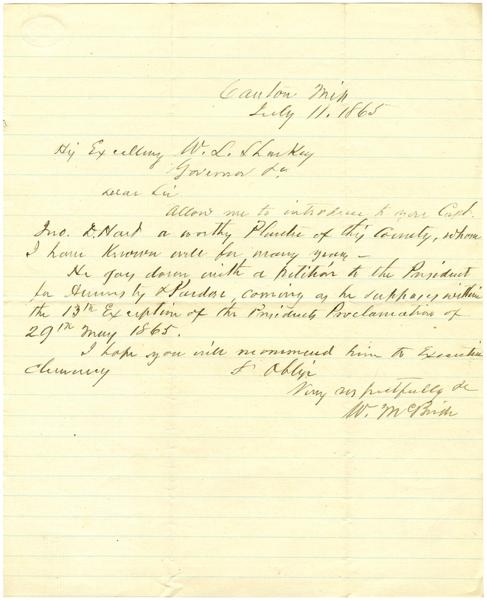 Canton Miss
July 11. 1865
His Excellency W. L. Sharkey
Governor &c
Dear Sir
Allow me to introduce to you Capt.
Jno. D. Hart a worthy Planter of this County, whom
I have Known well for many years –
He goes down with a petition to the President
for Amnesty & Pardon, coming as he supposes within
the 13th Exception of the Presidents Proclamation of
29th May 1865.
I hope you will recommend him to Executive
clemency & Oblige
Very respectfully &c
W. McBride